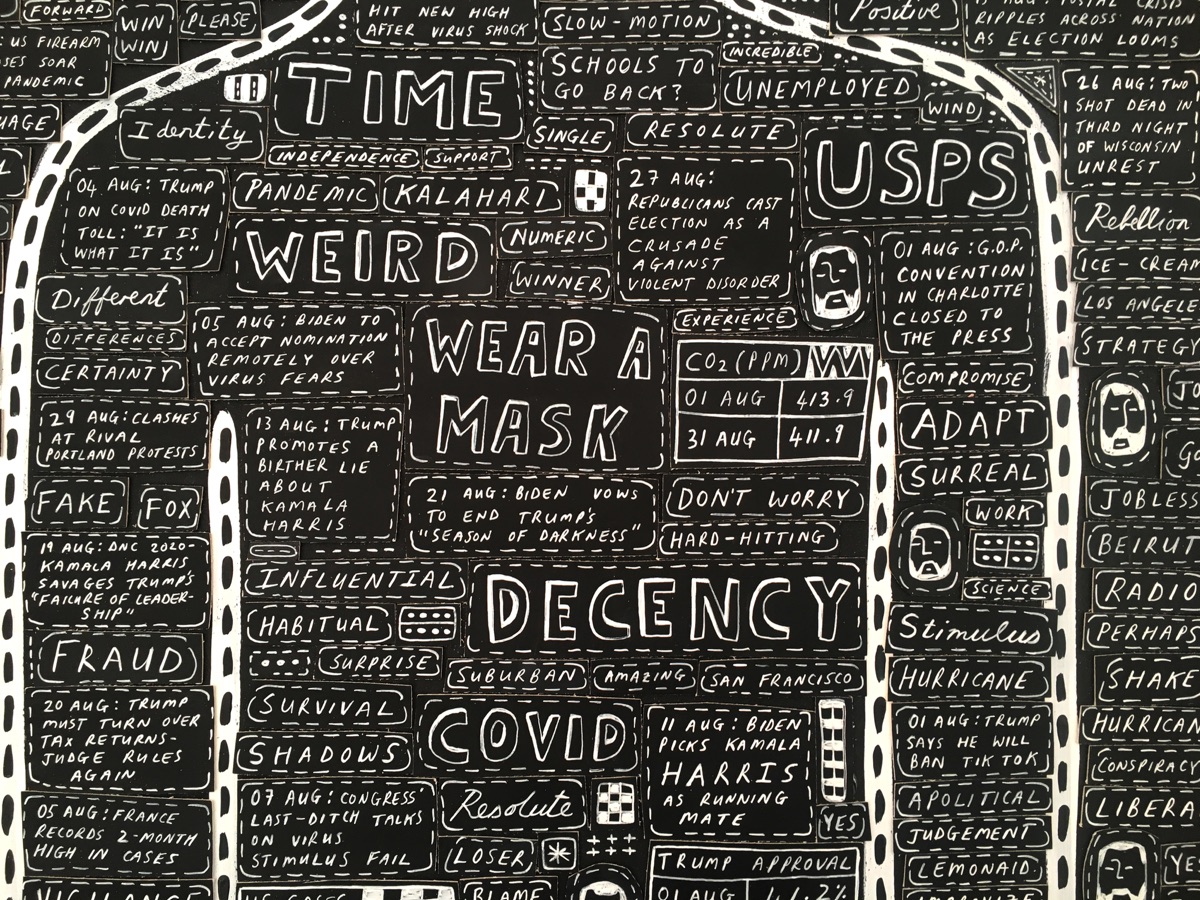 FORWARD
WIN
WIN
PLEASE
HIT NEW HIGH
AFTER VIRUS SHOCK
SLOW-MOTION
Positive
RIPPLES ACROSS NATION
AS ELECTION LOOMS
US FIREARM
SOAR
PANDEMIC
TIME
SCHOOLS TO
GO BACK?
INCREDIBLE
UNEMPLOYED
WIND
26 AUG: TWO
SHOT DEAD IN
THIRD NIGHT
OF WISCONSIN
UNREST
Identity
SINGLE
RESOLUTE
USPS
INDEPENDENCE
SUPPORT
04 AUG: TRUMP
ON COVID DEATH
TOLL: "IT IS
WHAT IT IS"
PANDEMIC
KALAHARI
27 AUG:
REPUBLICANS CAST
ELECTION AS A
CRUSADE
AGAINST
VIOLENT DISORDER
Rebellion
WEIRD
NUMERIC
WINNER
01 AUG: G.O.P.
CONVENTION
IN CHARLOTTE
CLOSED TO
THE PRESS
ICE-CREAM
LOS ANGELE
STRATEGY
Different
DIFFERENCES
CERTAINTY
05 AUG: BIDEN TO
ACCEPT NOMINATION
REMOTELY OVER
VIRUS FEARS
WEAR A
MASK
EXPERIENCE
CO2 (PPM)
01 AUG 413.9
31 AUG 411.9
COMPROMISE
ADAPT
SURREAL
29 AUG: CLASHES
AT RIVAL
PORTLAND PROTESTS
13 AUG: TRUMP
PROMOTES A
BIRTHER LIE
ABOUT
KAMALA
HARRIS
21 AUG: BIDEN VOWS
TO END TRUMP'S
"SEASON OF DARKNESS"
DON'T WORRY
HARD-HITTING
WORK
JOBLESS
FAKE
FOX
BEIRUT
19 AUG: DNC 2020-
KAMALA HARRIS
SAVAGES TRUMP'S
"FAILURE OF LEADER-
SHIP"
INFLUENTIAL
HABITUAL
DECENCY
SCIENCE
Stimulus
RADIO
PERHAPS
FRAUD
SURPRISE
SUBURBAN
AMAZING
SAN FRANCISCO
HURRICANE
SHAKE
20 AUG: TRUMP
MUST TURN OVER
TAX RETURNS-
JUDGE RULES
AGAIN
SURVIVAL
SHADOWS
COVID
11 AUG: BIDEN
PICKS KAMALA
HARRIS
AS RUNNING
MATE
01 AUG: TRUMP
SAYS HE WILL
BAN TIK TOK
HURRICAN
CONSPIRACY
05 AUG: FRANCE
RECORDS 2-MONTH
HIGH IN CASES
07 AUG: CONGRESS'
LAST-DITCH TALKS
ON VIRUS
STIMULUS FAIL
Resolute
LOSER
YES
APOLITICAL
JUDGEMENT
LEMONAID
LIBERA
TRUMP APPROVAL
01 AUG
BLAME